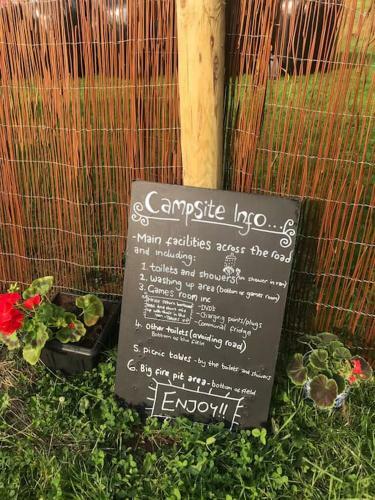 Campsite Info...
-Main facilities across the road
and including:
1. toilets and showers (in shower in row)
2. Washing up area (bottom of games room)
3. Games room inc
-WIFI
-Charging points/plugs
-Communal fridge
4. Other toilets (avoiding road)
Bottom of the field
5. picnic tables - by the toilets and showers
6. Big fire pit area - bottom of field
ENJOY!!